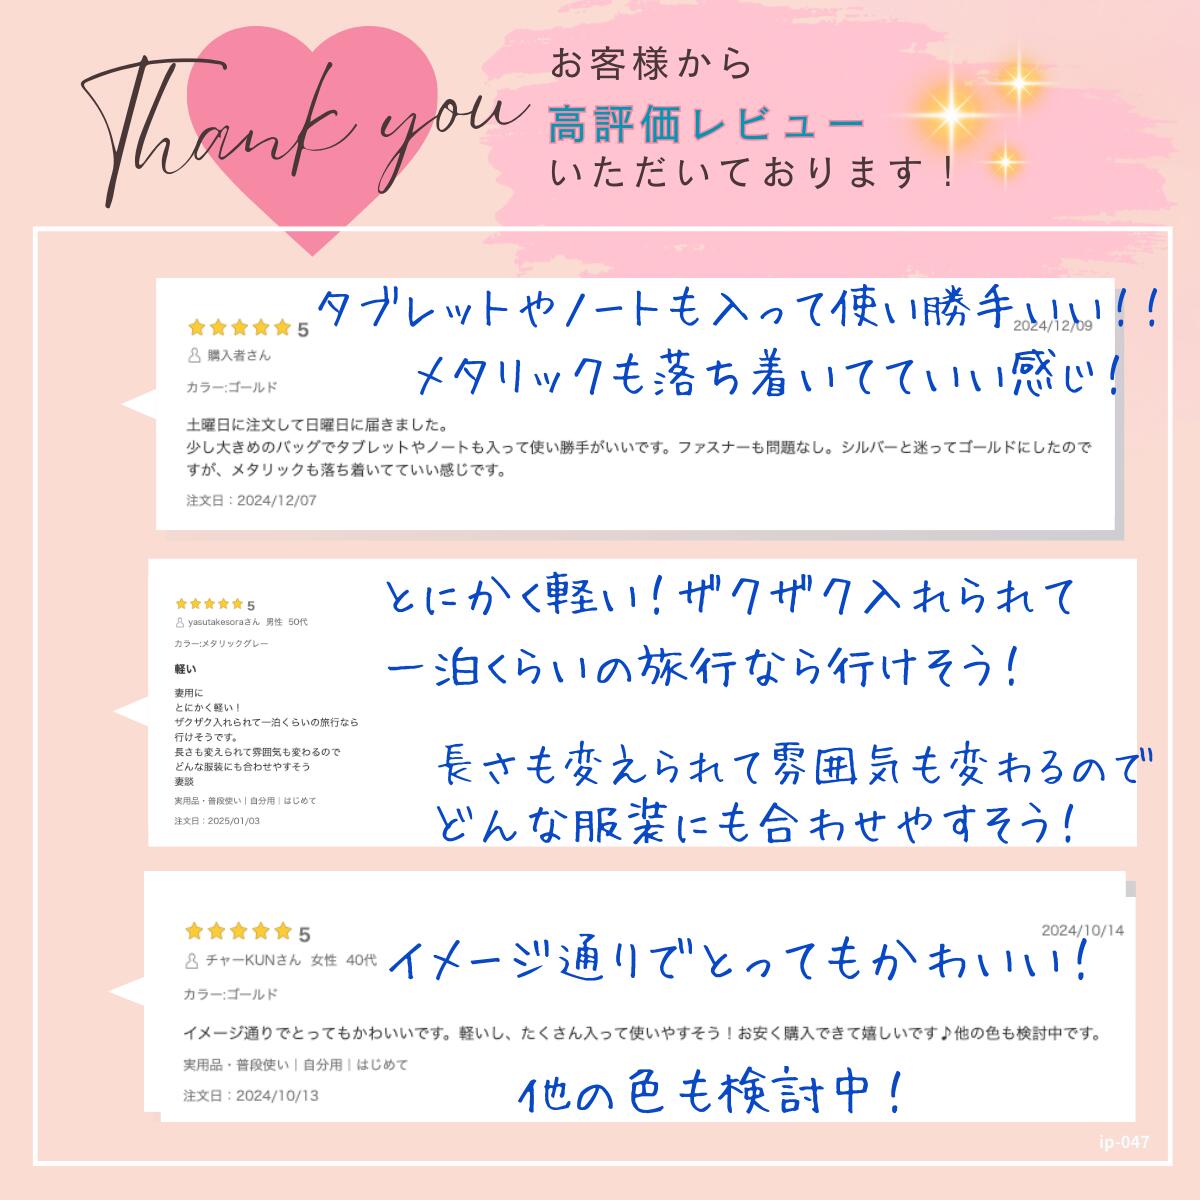 Thank you
お客様から
高評価レビュー
いただいております！
タブレットやノートも入って使い勝手いい!!
★★★★★ 5
2024/12/09
購入者さん
メタリックも落ち着いてていい感じ!
カラー:ゴールド
土曜日に注文して日曜日に届きました。
少し大きめのバッグでタブレットやノートも入って使い勝手がいいです。ファスナーも問題なし。シルバーと迷ってゴールドにしたので
すが、メタリックも落ち着いてていい感じです。
注文日：2024/12/07
とにかく軽い！ザクザク入れられて
一泊くらいの旅行なら行けそう！
★★★★★ 5
yasutakesoraさん 男性 50代
カラー:メタリックグレー
軽い
妻用に
とにかく軽い！
ザクザク入れられて一泊くらいの旅行なら
行けそうです。
長さも変えられて雰囲気も変わるので
どんな服装にも合わせやすそう
妻談
実用品・普段使い｜自分用｜はじめて
注文日：2025/01/03
長さも変えられて雰囲気も変わるので
どんな服装にも合わせやすそう！
★★★★★ 5
2024/10/14
チャーKUNさん 女性 40代
イメージ通りでとってもかわいい！
カラー:ゴールド
イメージ通りでとってもかわいいです。軽いし、たくさん入って使いやすそう！お安く購入できて嬉しいです♪他の色も検討中です。
実用品・普段使い｜自分用｜はじめて
注文日：2024/10/13
他の色も検討中！
ip-047